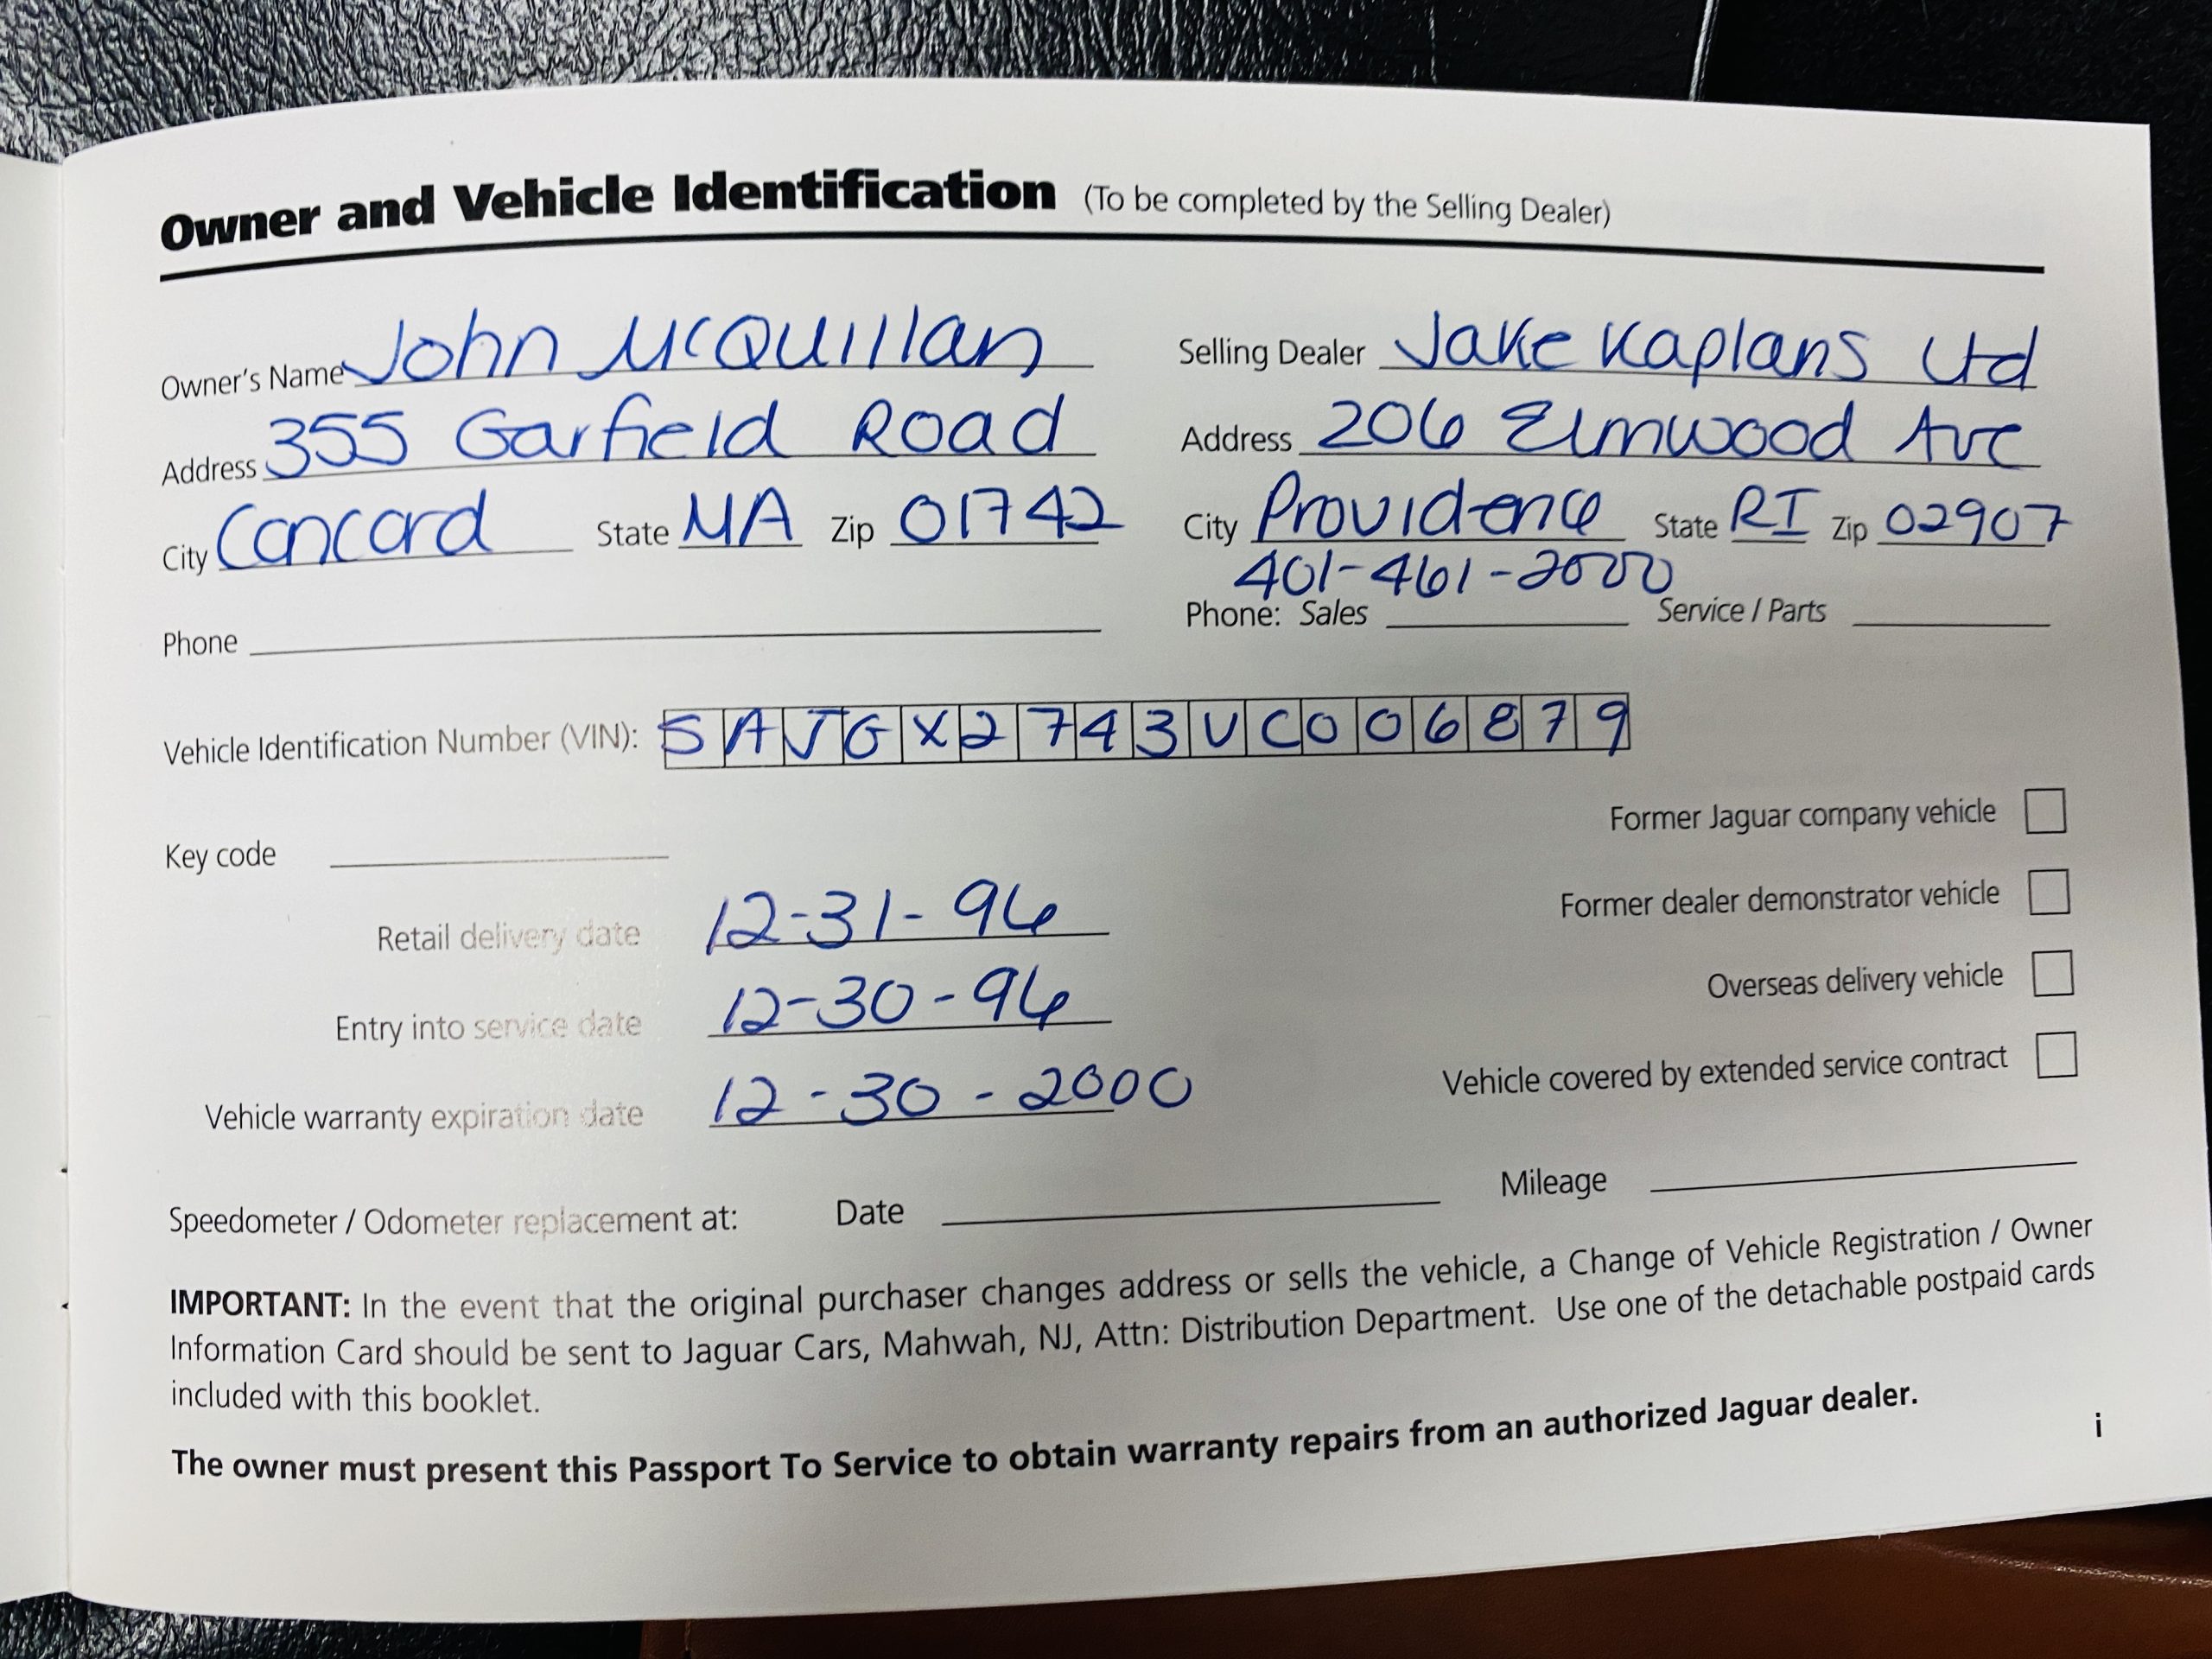 Owner and Vehicle Identification (To be completed by the Selling Dealer)
Owner's Name John McQuillan
Address 355 Garfield Road
City Concord State MA Zip 01742
Phone
Selling Dealer Jake Kaplans Ltd
Address 206 Elmwood Ave
City Providence State RI Zip 02907
401-461-2000
Phone: Sales Service / Parts
Vehicle Identification Number (VIN): SAJGX2743VC006879
Key code
Former Jaguar company vehicle
Retail delivery date 12-31-96
Former dealer demonstrator vehicle
Entry into service date 12-30-96
Overseas delivery vehicle
Vehicle warranty expiration date 12-30-2000
Vehicle covered by extended service contract
Speedometer / Odometer replacement at: Date Mileage
IMPORTANT: In the event that the original purchaser changes address or sells the vehicle, a Change of Vehicle Registration / Owner
Information Card should be sent to Jaguar Cars, Mahwah, NJ, Attn: Distribution Department. Use one of the detachable postpaid cards
included with this booklet.
The owner must present this Passport To Service to obtain warranty repairs from an authorized Jaguar dealer.
i